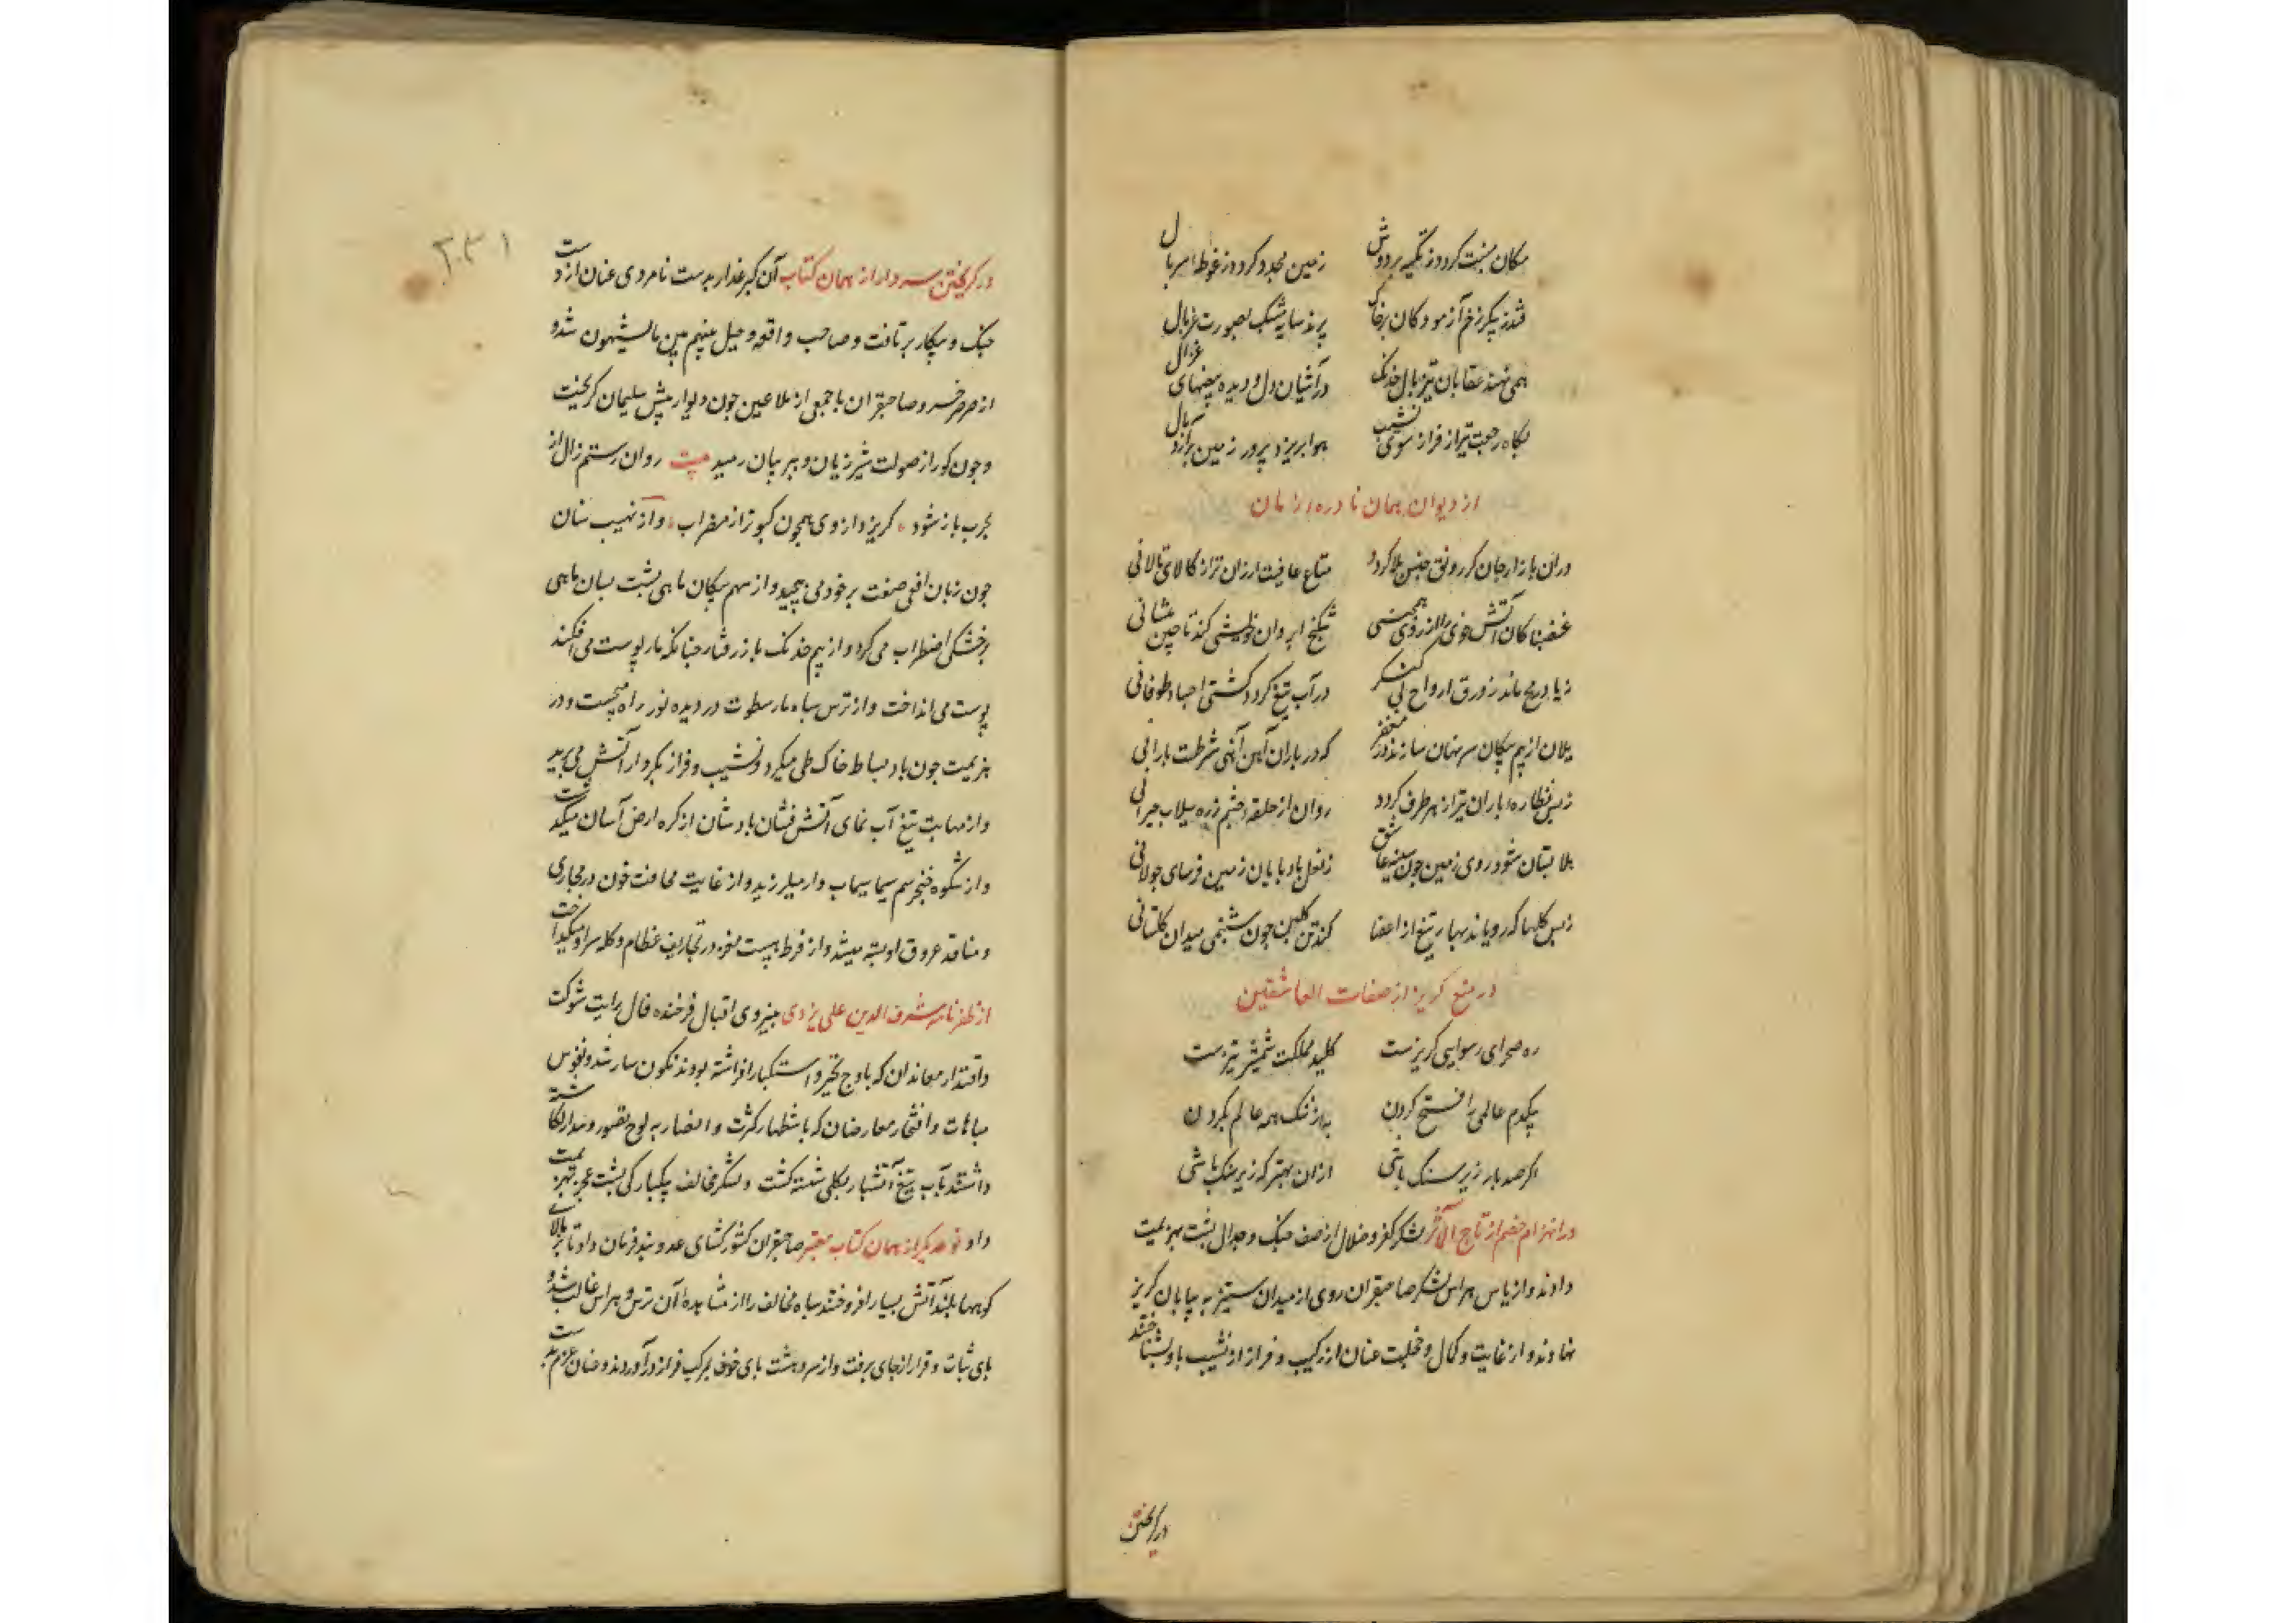 مکان بنشت کردد ز تکیه بر دوش زمین مجدد کردد ز غوطه سربال
فتد ز پیکر زخم آزمودکان بر خاک پرند سایه مشبک بصورت غربال
همی نهند عقابان تیز بال خدنک در آشیان دل و دیده بیضهای
بکاه رجعت تیر از فراز سوی نشیب هوا بریزد پرور زمین برآرد بال
از دیوان همان نادره زمان
دران بازار جان کز رونق جنس بلا کردد متاع عافیت ارزان تر از کالای تالانی
غضبناکان آتش خوی را از روی شکنج ابروان خویشی کند تا چین پیشانی
ز باد رمح ماند زورق ارواح بی لنکر در آب تیغ کردد کشتی اجساد طوفانی
یلان از بیم پیکان سر نهان سازند در مغفر که در باران آهن آنهی شرطست بارانی
ز بس نظاره باران تیر از هر طرف کردد روان از حلقه چشم زره سیلاب حیرانی
بلابستان شود روی زمین چون سینه عاشق ز نعل بادپایان زمین فرسای جولانی
ز بس کلها که رویاند بهار تیغ از اعضا کند تن کلبن چون شبنمی میدان کلستانی
در منع کریز از صفات العاشقین
ره صحرای رسوایی کریزست کلید مملکت شمشیر تیزست
بیکدم عالمی را فسخ کردن به از ننک همه عالم بکردن
اکر صد بار زیر سنک باشی ازان بهتر که زیر ننک باشی
در انهزام خصم از تاج المآثر لشکر کفر و ضلال از صف جنک و جدال پشت بهزیمت
دادند و از باس هراس لشکر صاحبقران روی از میدان ستیز به بیابان کریز
نهادند و از غایت و کمال و خجلت عنان از رکیب و فراز از نشیب باز نشناختند
در کریختن
۲۳۱
در کریختن سردار از همان کتاب آن کبر غدار بدست نامردی عنان از دست
جنک و پیکار برتافت و صاحب واقعه و حیل بینهم و بین ما یشتهون شده
از صرصر خسرو صاحبقران با جمعی از ملاعین چون دیو از پیش سلیمان کریخت
و چون کور از صولت شیر ژیان و ببر بیان رمید بیت روان رستم زال ار
بحرب باز شود کریزد از وی همچون کبوتر از مضراب و از نهیب سنان
چون زبان افعی صفت بر خود می پیچید و از سهم پیکان ماهی پشت بسان ماهی
بر خشکی اضطراب می کرد و از بیم خدنک مار رفتار چنانکه مار پوست می افکند
پوست می انداخت و از ترس سپاه مار سطوت در دیده نور راه میجست و در
هزیمت چون باد بساط خاک طی میکرد و نشیب و فراز بکردار آتش می برید
و از مهابت تیغ آب نمای آتش فشان باد شان از کره ارض آسان میکذشت
و از شکوه خنجر سیم سیما سیماب وار میلرزید و از غایت مخافت خون در مجاری
و منافذ عروق او بسته میشد و از فرط هیبت مغز در تجاویف عظام و کله سر او میکداخت
از ظفرنامه شرف الدین علی یزدی بنیروی اقبال فرخنده فال رایت شوکت
و اقتدار معاندان که باوج تجبر و استکبار افراشته بودند نکونسار شد و نقوش
مباهات و افتخار معارضان که باستظهار کثرت و انصار بر لوح تصور و پندار نکاشته
داشتند بآب تیغ آتشبار بکلی شسته کشت و لشکر مخالف یکبارکی پشت عجز بهزیمت
داد نوعدیکر از همان کتاب معتبر صاحبقران کشورکشای عدوبند فرمان داد تا بر بالای
کوهها بلند آتش بسیار افروختند سپاه مخالف را از مشاهده آن ترس و هراس غالب شد و
پای ثبات و قرار از جای برفت و از سر دهشت پای خوف بمرکب فرار درآوردند و عنان عزم بدست